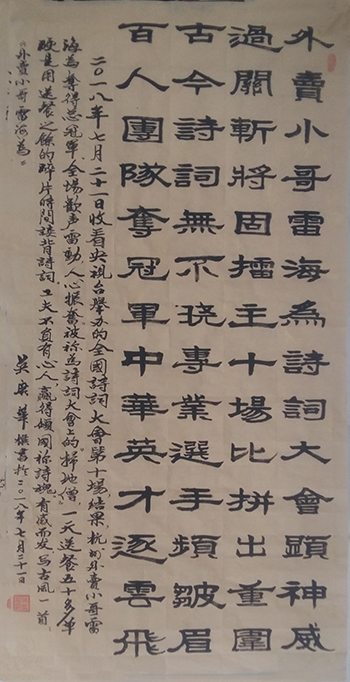 外賣小哥雷海為詩詞大會顕神威
過關斬將固擂主十場比拼出重圍
古今詩詞無不碗專業選手頻皺眉
百人團隊奪冠軍中華英才逐雲飛
二〇一八年七月二十一日收看央視台舉办的全國詩詞大會第十場結果杭州外賣小哥雷
海為奪得总冠軍全場歡声雷動人心振奮被称為詩詞大會上的掃地僧一天送餐五十多单
硬是用送餐之餘的碎片時間接背詩詞工夫不負有心人贏得傾國称詩魂有感而发写古風一首
《外賣小哥雷海為》。
吴典華撰書於二〇一八年七月二十一日